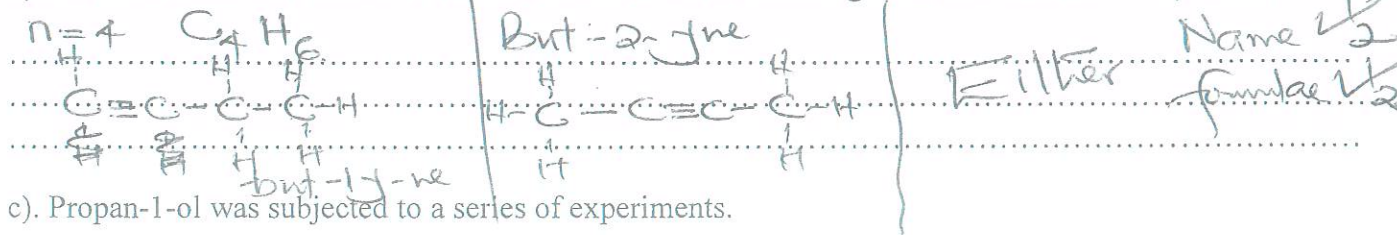 n = 4 C4 H6 But-2-yne Name ✓½
H H H H H Either formulae ✓½
C≡C-C-C-H H-C-C≡C-C-H
H H H H
but-1-y-ne
c). Propan-1-ol was subjected to a series of experiments.